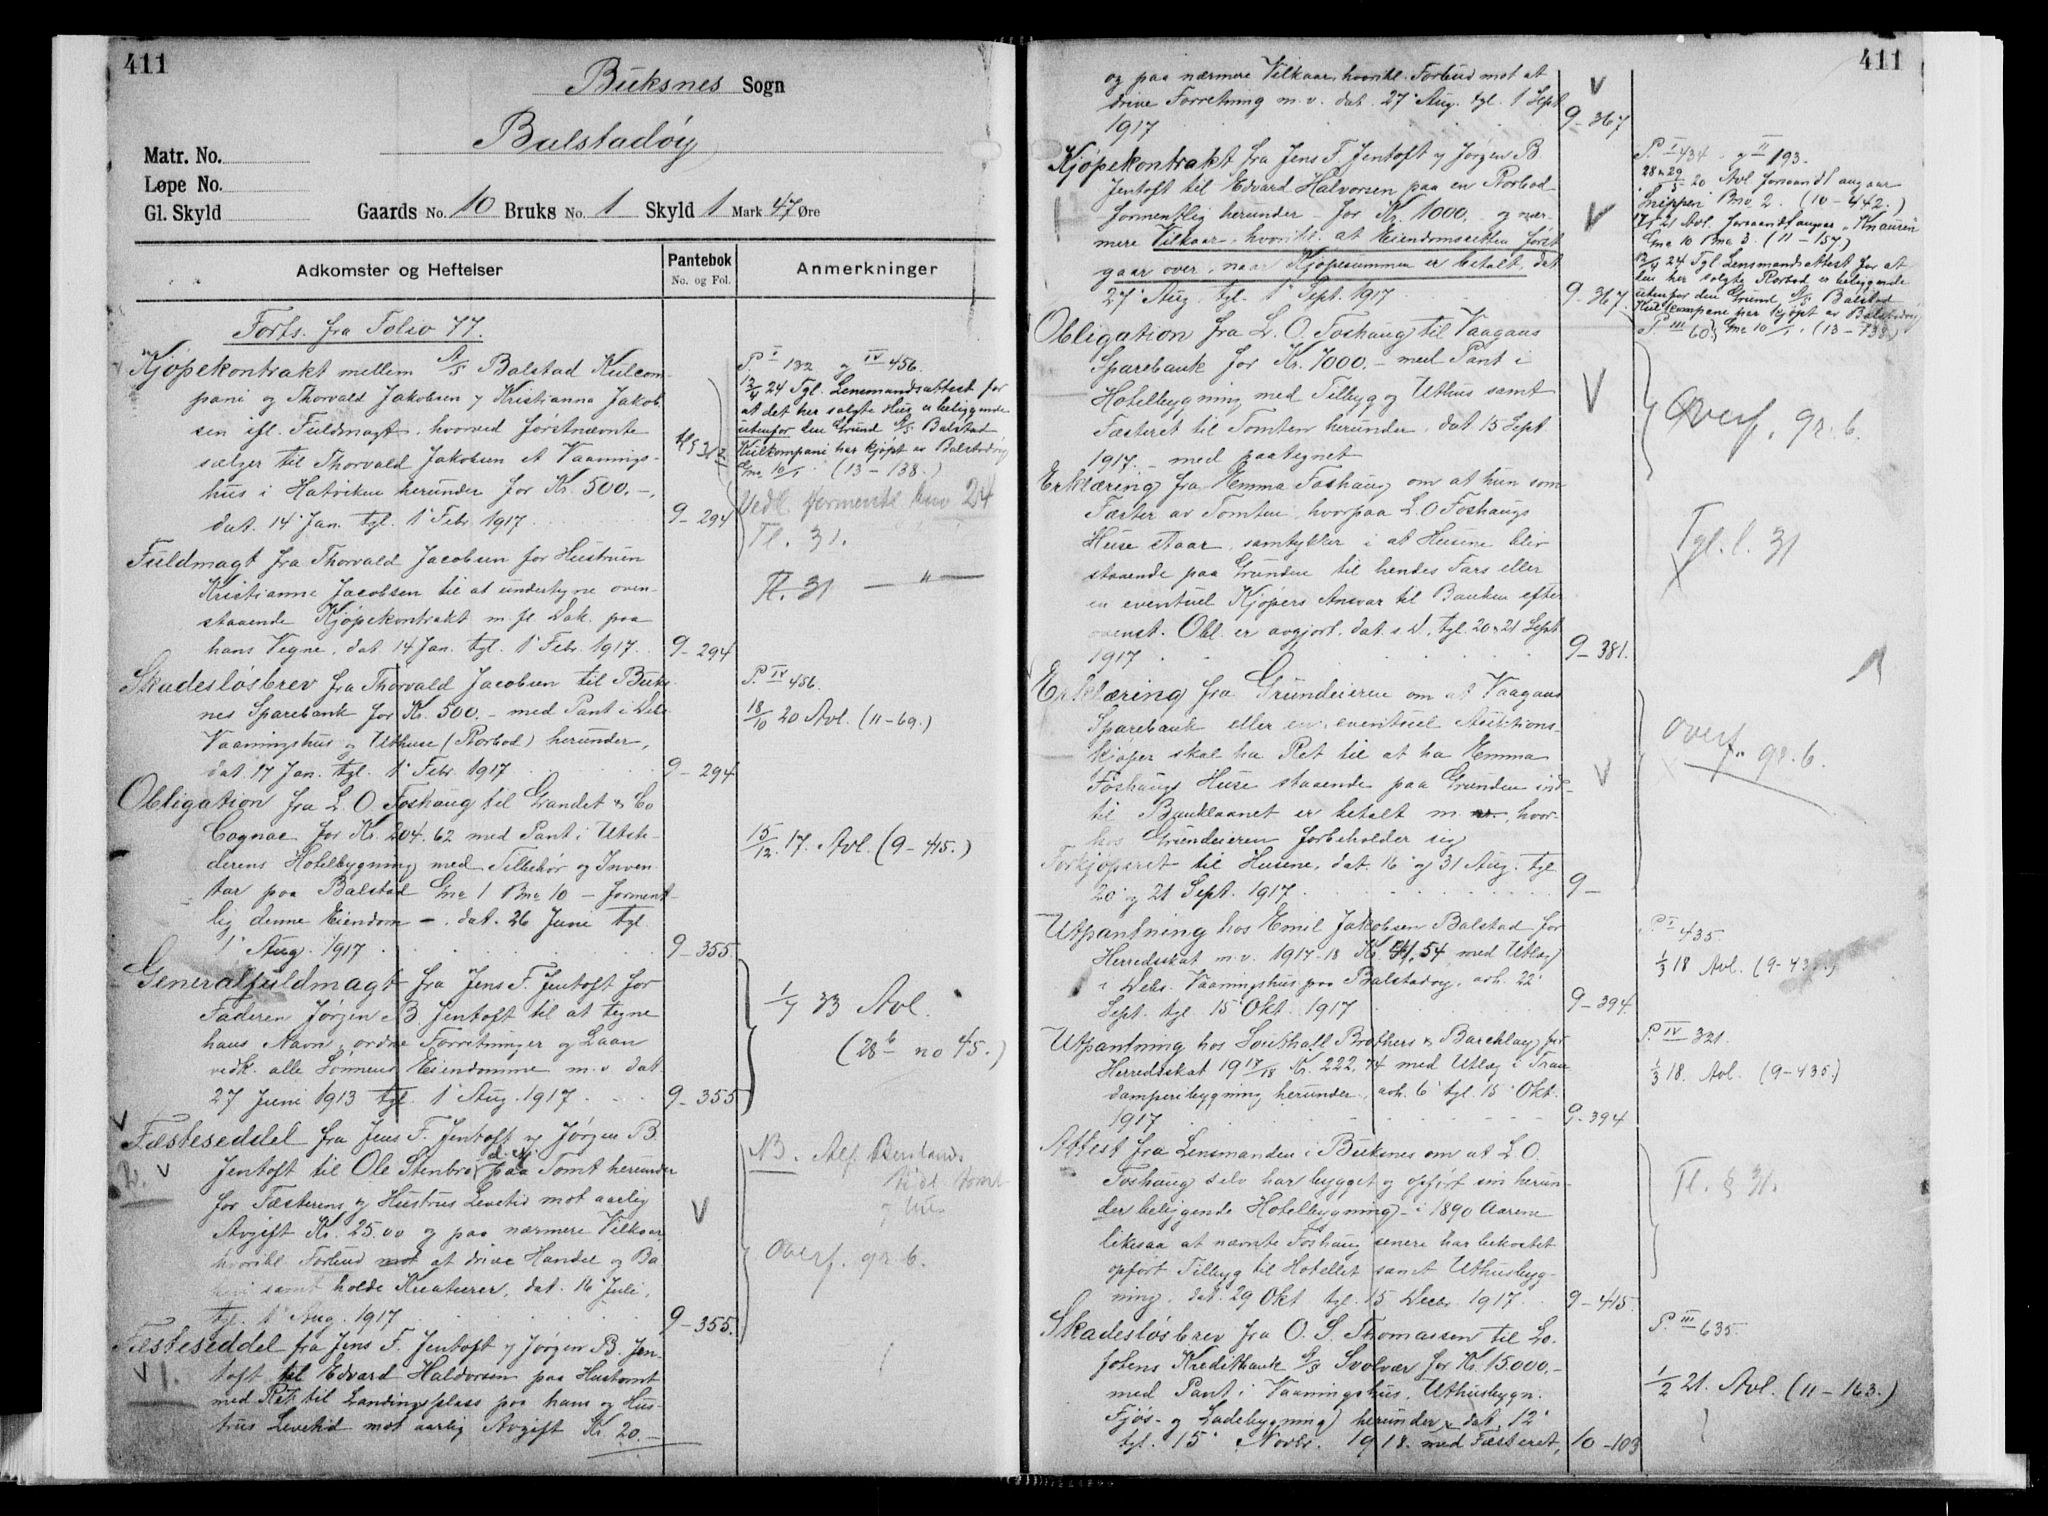 411
Buksnes Sogn
Balstadøy
Matr. No.
Løpe No.
Gl. Skyld
Gaards No. 10 Bruks No. 1 Skyld 1 Mark 47 Øre
Adkomster og Heftelser
Pantebok
No. og Fol.
Anmerkninger
Forts. fra Folio 77.
Kjøpekontrakt mellem A/S Balstad Kulcom-
pani og Thorvald Jakobsen & Kristianna Jakob-
sen ifl. Fuldmagt, hvorved førstnævnte
sælger til Thorvald Jakobsen et Vaanings-
hus i Hatviken herunder for Kr. 500.-,
dat. 14 Jan. tgl. 1 Febr. 1917
9-294
P. I 132 og IV 456.
12/4 24 Tgl. Lensmandsattest for
at det her solgte Hus er beliggende
utenfor den Grund A/S Balstad
Kulkompani har kjøpt av Balstadøy
Gno 10/1. (13-138.)
Tl. 31.
Fuldmagt fra Thorvald Jacobsen for Hustruen
Kristianne Jacobsen til at undertegne oven-
staaende Kjøpekontrakt m. fl. Dok. paa
hans Vegne, dat. 14 Jan. tgl. 1 Febr. 1917.
9-294
Tl. 31 — " —
Skadesløsbrev fra Thorvald Jacobsen til Buks-
nes Sparebank for Kr. 500.- med Pant i Debs
Vaaningshus og Uthuse (Rorbod) herunder,
dat. 17 Jan. tgl. 1 Febr. 1917
9-294
P. IV 456.
18/10 20 Avl. (11-69.)
Obligation fra L. O. Foshaug til Grandet & Co
Cognac for Kr. 204.62 med Pant i Utste-
derens Hotelbygning med Tilbehør og Inven-
tar paa Balstad Gno 1 Bno 10 – forment-
lig denne Eiendom –. dat. 26 Juni tgl.
1 Aug. 1917
9-355.
15/12. 17. Avl. (9-415.)
Generalfuldmagt fra Jens F. Jentoft for
Faderen Jørgen B. Jentoft til at tegne
hans Navn, ordne Forretninger og Laan
vedk. alle Sønnens Eiendomme m. v. dat.
27 Juni 1913 tgl. 1 Aug. 1917
9-355
1/7 33 Avl.
(28 b no 45.)
Fæsteseddel fra Jens F. Jentoft og Jørgen B.
Jentoft til Ole Stenbro paa Tomt herunder
for Fæsterens og Hustrus Levetid mot aarlig
Avgift Kr. 25.00 og paa nærmere Vilkaar
hvoribl. Forbud mot at drive Handel og Ba
samt holde Kreaturer, dat. 16 Juli,
tgl. 1 Aug. 1917
9-355.
NB. Alf
Overf. gr. 6.
Fæsteseddel fra Jens F. Jentoft & Jørgen B. Jen-
toft til Edvard Haldorsen paa Hustomt
med Ret til Landingsplass paa hans og Hus-
trus Levetid mot aarlig Avgift Kr. 20.-
411
og paa nærmere Vilkaar, hvoribl. Forbud mot at
drive Forretning m. v. dat. 27 Aug. tgl. 1 Sept
1917
9-367
Kjøpekontrakt fra Jens F. Jentoft & Jørgen B.
Jentoft til Edvard Halvorsen paa en Rorbod
formentlig herunder – for Kr. 1000.- og nær-
mere Vilkaar, hvoribl. at Eiendomsretten først
gaar over, naar Kjøpesummen er betalt, dat
27 Aug. tgl. 1 Sept. 1917
9-367.
P. I 434 og II 193.
28 & 29/5 20 Avl forsaavidt angaar
Snippen Bno 2. (10-442.)
17/5 21 Avl. forsaavidt angaar Knausen
Gno 10 Bno 3. (11-157)
12/4 24 Tgl. Lensmandsattest for at
den her solgte Rorbod er beliggende
utenfor den Grund A/S Balstad
Kulkompani har kjøpt av Balstadøy
P. III 60. Gno 10/1. (13-138)
Obligation fra L. O. Foshaug til Vaagans
Sparebank for Kr. 7000.- med Pant i
Hotelbygning med Tilbyg og Uthus samt
Fæsteret til Tomten herunder, dat. 15 Sept
1917. – med paategnet
Overf. gr. 6.
Erklæring fra Emma Foshaug om at hun som
Fæster av Tomten, hvorpaa L. O. Foshaugs
Huse staar, samtykker i at Husene blir
staaende paa Grunden til hendes Fars eller
en eventuel Kjøpers Ansvar til Banken efter
ovenst. Obl. er avgjort. dat. s. D., tgl. 20 & 21 Sept
1917
9-381.
Tgl. l. 31
Erklæring fra Grundeieren om at Vaagans
Sparebank eller en eventuel Auktions-
kjøper skal ha Ret til at ha Emma
Foshaugs Huse staaende paa Grunden ind-
til Banklaanet er betalt m. m., hvor-
hos Grundeieren forbeholder sig
Forkjøpsret til Husene, dat. 16 og 31 Aug. tgl
20 og 21 Sept. 1917
9-
Overf. gr. 6.
Utpantning hos Emil Jakobsen Balstad for
Herredsskat m. v. 1917-18 Kr. 41.54 med Utlæg
i Debs. Vaaningshus paa Balstadøy, avh. 22
Sept. tgl. 15 Okt. 1917
9-394.
P. I 435.
1/3 18 Avl. (9-435.)
Utpantning hos Southall Brothers & Barclay for
Herredsskat 1917/18 Kr. 222,74 med Utlæg i Tran
damperibygning herunder, avh. 6 tgl. 15 Okt.
1917.
9-394
P. IV 321.
1/3 18. Avl. (9-435.)
Attest fra Lensmanden i Buksnes om at L. O.
Foshaug selv har bygget og opført sin herun-
der beliggende Hotelbygning – i 1890 Aarene
likesaa at nævnte Foshaug senere har bekostet
opført Tilbyg til Hotellet samt Uthusbyg-
ning. dat. 29 Okt. tgl. 15 Decbr. 1917.
9-415.
Tl. § 31.
Skadesløsbrev fra O. S. Thomassen til Lo-
fotens Kreditbank A/S Svolvær for Kr. 15.000.-
med Pant i Vaaningshus, Uthusbygn.
Fjøs- og Ladebygning herunder, dat. 12
tgl. 15 Novbr. 1918. med Fæsteret,
10-103
P. III 635.
1/2 21. Avl. (11-163.)